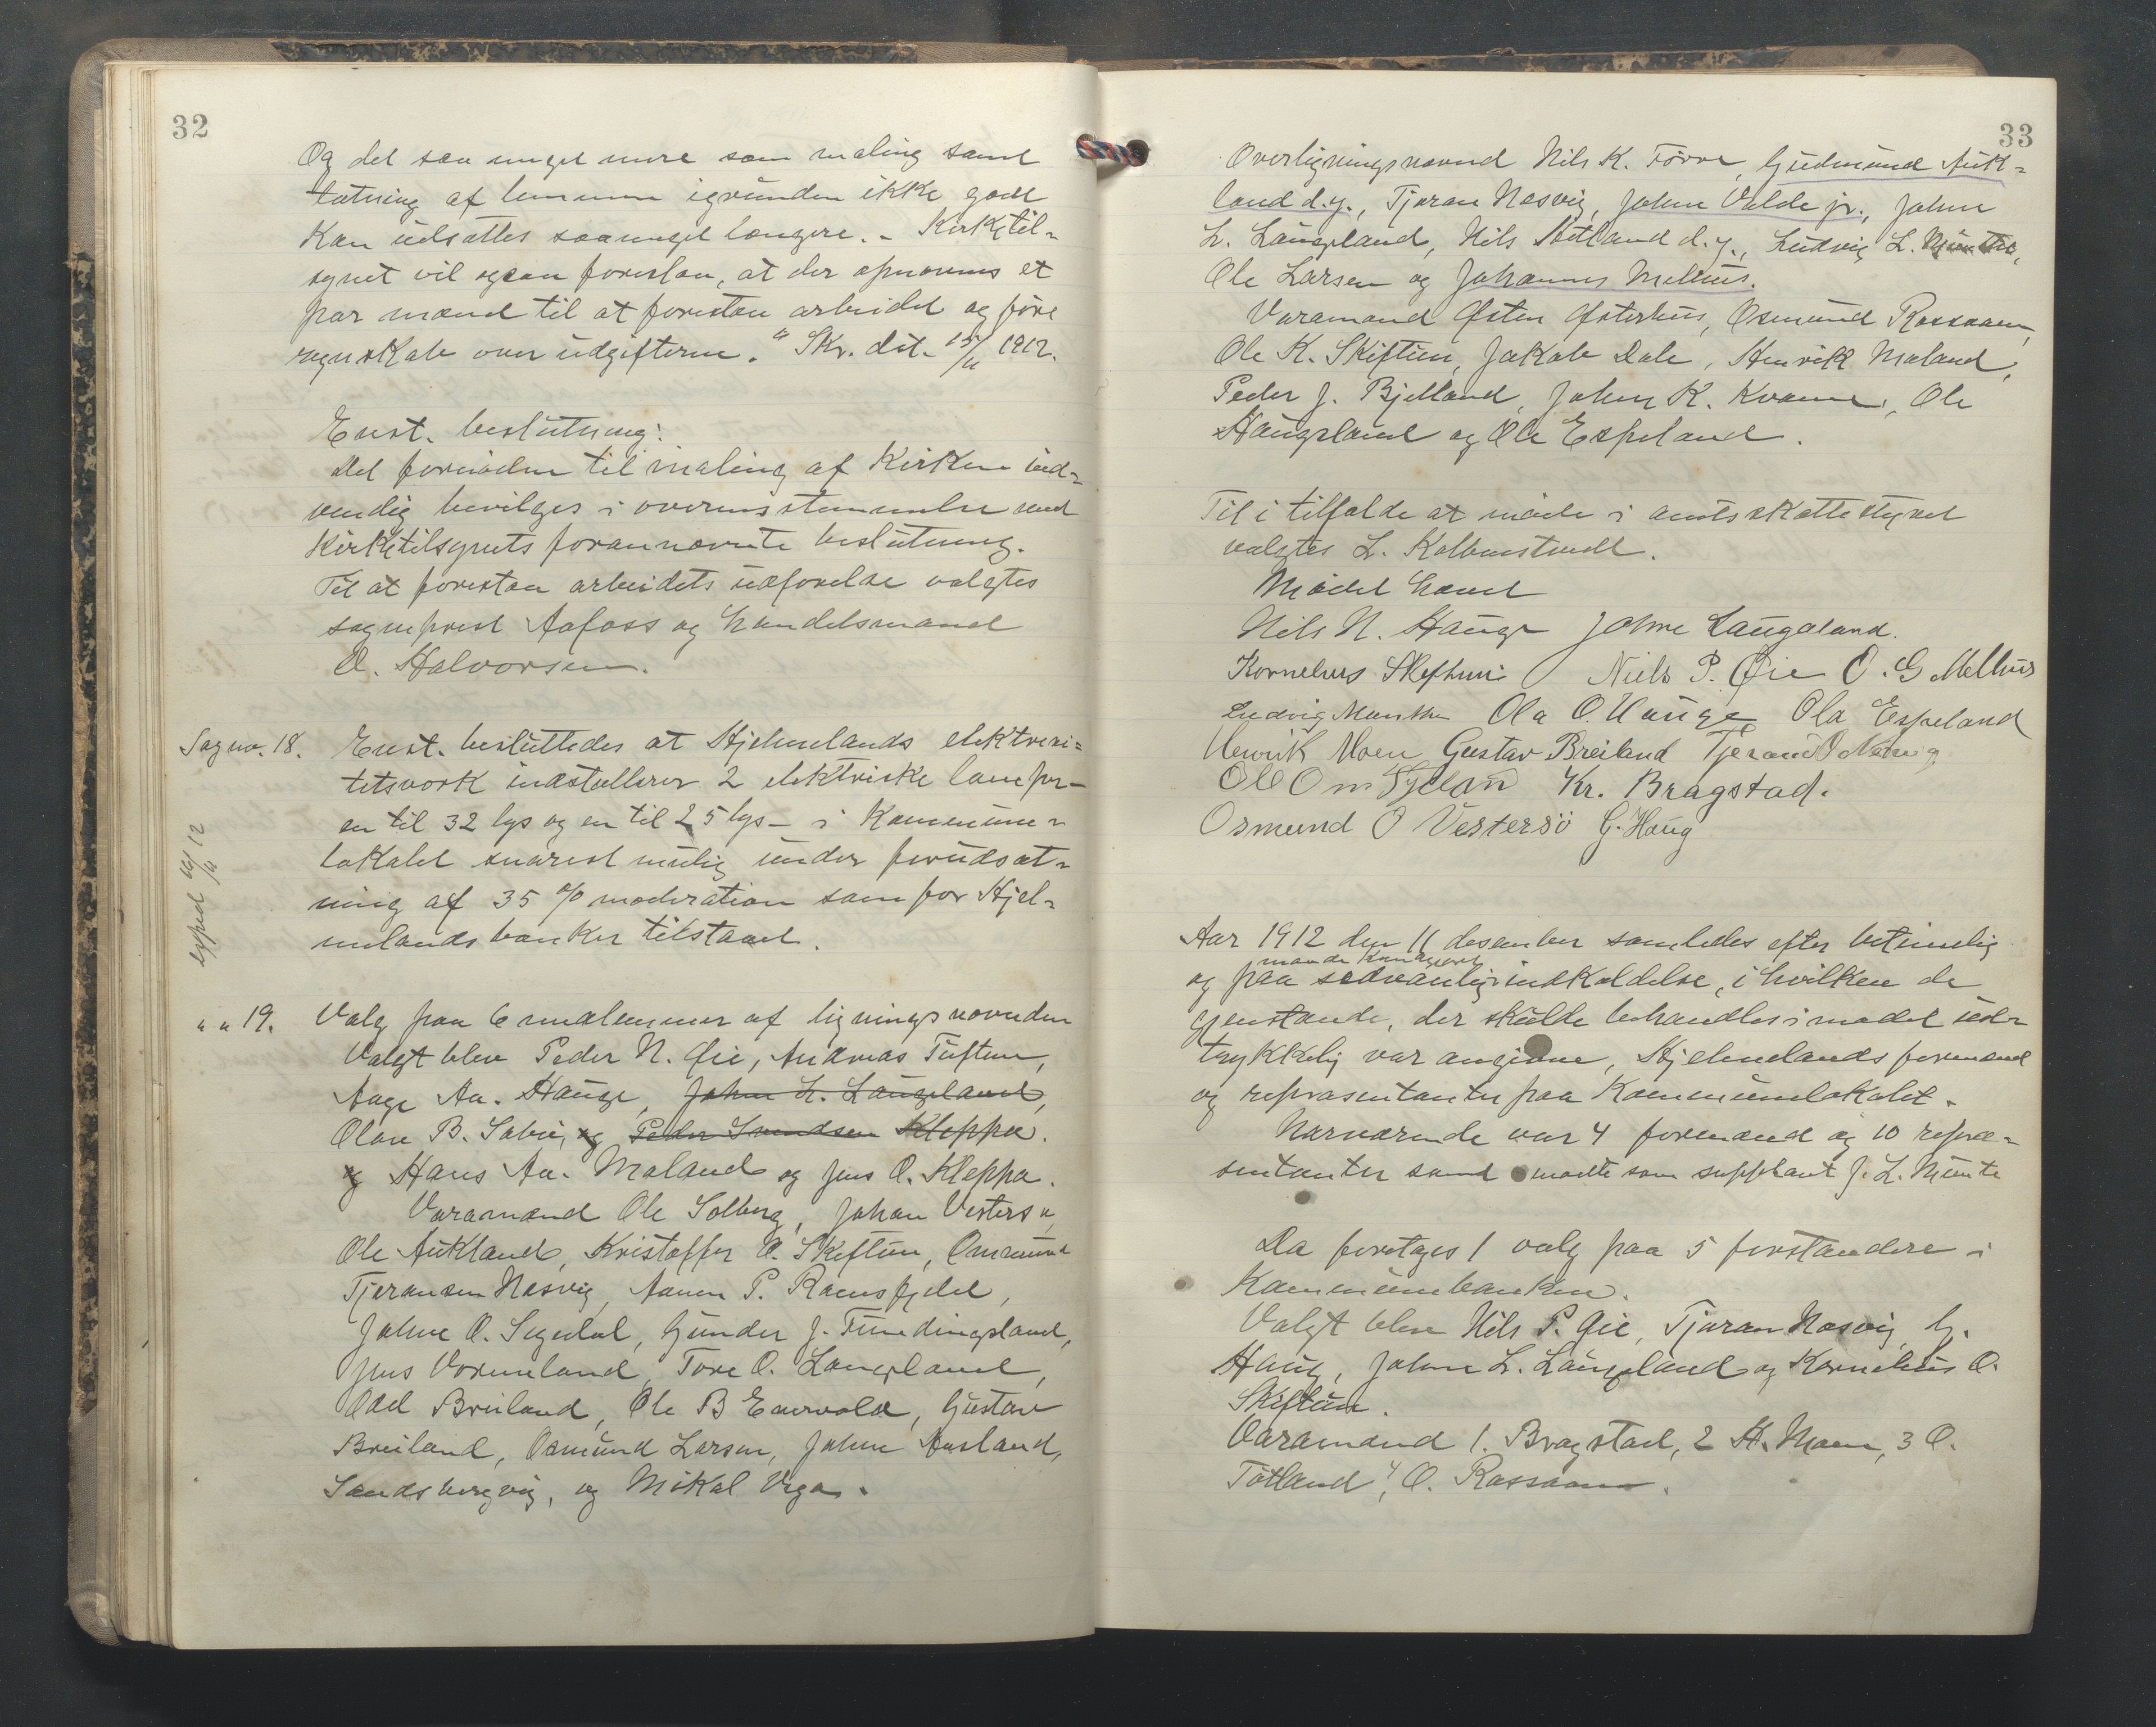 32
Og det saa meget mere som maling samt
tætning af lemmen igrunden ikke godt
kan udsættes saameget længere. - Kirketil-
synet vil ogsaa foreslaa, at der opnævnes et
par mænd til at forestaa arbeidet og føre
regnskab over udgifterne." Skr. dat. 15/11 1912.
Enst. beslutning:
Det fornødne til maling af kirken ind-
vendig bevilges i overensstemmelse med
Kirketilsynets forannævnte beslutning.
Til at forestaa arbeidets udførelse valgtes
sogneprest Aafoss og handelsmand
O. Halvorsen.
Sag no. 18. Enst. besluttedes at Hjelmelands elektrici-
tetsverk indstallerer 2 elektriske lamper -
en til 32 lys og en til 25 lys - i Kommune-
lokalet snarest mulig under forudsæt-
ning af 35 % moderation som for Hjel-
melands banker tilstaaet.
exped 19/11 12
" " 19. Valg paa 6 medlemmer af ligningsnævnden
Valgt blev Peder N. Øie, Andreas Tuftene,
Aage Aa. Hauge, John L. Laugaland,
Olave B. Sabø, og Peder Svendsen Kleppa.
og Hans Aa. Mæland og Jens O. Kleppa.
Varamænd Ole Solberg, Johan Vestersø,
Ole Aukland, Kristoffer O. Skiftun, Ommund
Tjeransen Næsvig, Aanen P. Ramsfjeld,
Johne O. Segedal, Gunder J. Funningsland,
Jens Vormeland, Tore O. Laugaland,
Odd Breiland, Ole B Enervold, Gustav
Breiland, Osmund Larsen, Johne Aasland,
Sandsbergvig, og Mikal Viga.
33
Overligningsnævnd Nils K. Førre, Gudmund Auk-
land d.y., Tjeran Næsvig, John Valde jr., Johne
L. Laugaland, Nils Østland d.y., Ludvig L. Munthe,
Ole Larsen og Johannes Melhus.
Varamænd Østen Østerhus, Osmund Rossaaen,
Ole K. Skiftun, Jakob Dale, Henrik Mæland,
Peder J. Bjelland, Johne K. Kvame, Ole
Haugsland og Ole Espeland.
Til i tilfælde at møde i amtsskattestyret
valgtes L. Kolbenstvedt.
Mødet hævet
Nils N. Hauge Johne Laugaland.
Kornelius Skiftun Niels P. Øie O. G Melhus
Ludvig Munthe Ola O. Hauge Ola Espeland
Henrik Moen Gustav Breiland Tjerand O Næsvig
Kr. Bragstad.
Osmund O Vestersö G. Haug
Aar 1912 den 11 desember samledes efter betimelig
maade kundgjort
og paa sedvanlig indkaldelse, i hvilken de
gjenstande, der skulde behandles i mødet ud-
trykkelig var angivne, Hjelmelands formænd
og repræsentanter paa Kommunelokalet.
Nærværende var 4 formænd og 10 repræ-
sentanter samt mødte som supplant J. L. Munte
Da foretages 1 valg paa 5 forstandere i
Kommunebanken.
Valgt blev Nils P. Øie, Tjeran Næsvig, G.
Haug, Johne L. Laugaland og Kornelius O.
Skiftun.
Varamænd 1. Bragstad, 2 H. Moen, 3 O.
Tøtland, 4 O. Rossaaen.